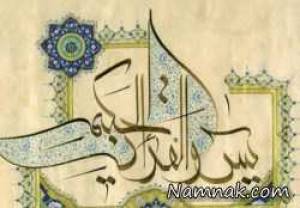 يس والقرآن الحكيم
Namnak.com